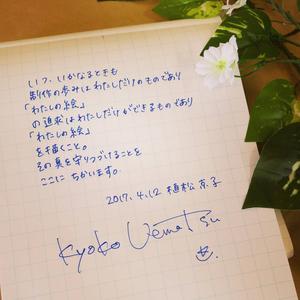 いつ、いかなるときも
制作の歩みはわたしだけのものであり
「わたしの絵」
の追求はわたしだけができるものであり
「わたしの絵」
を描くこと。
その真を守りつづけることを
ここに ちかいます。
2017.4.12 植松京子
Kyoko Uematsu